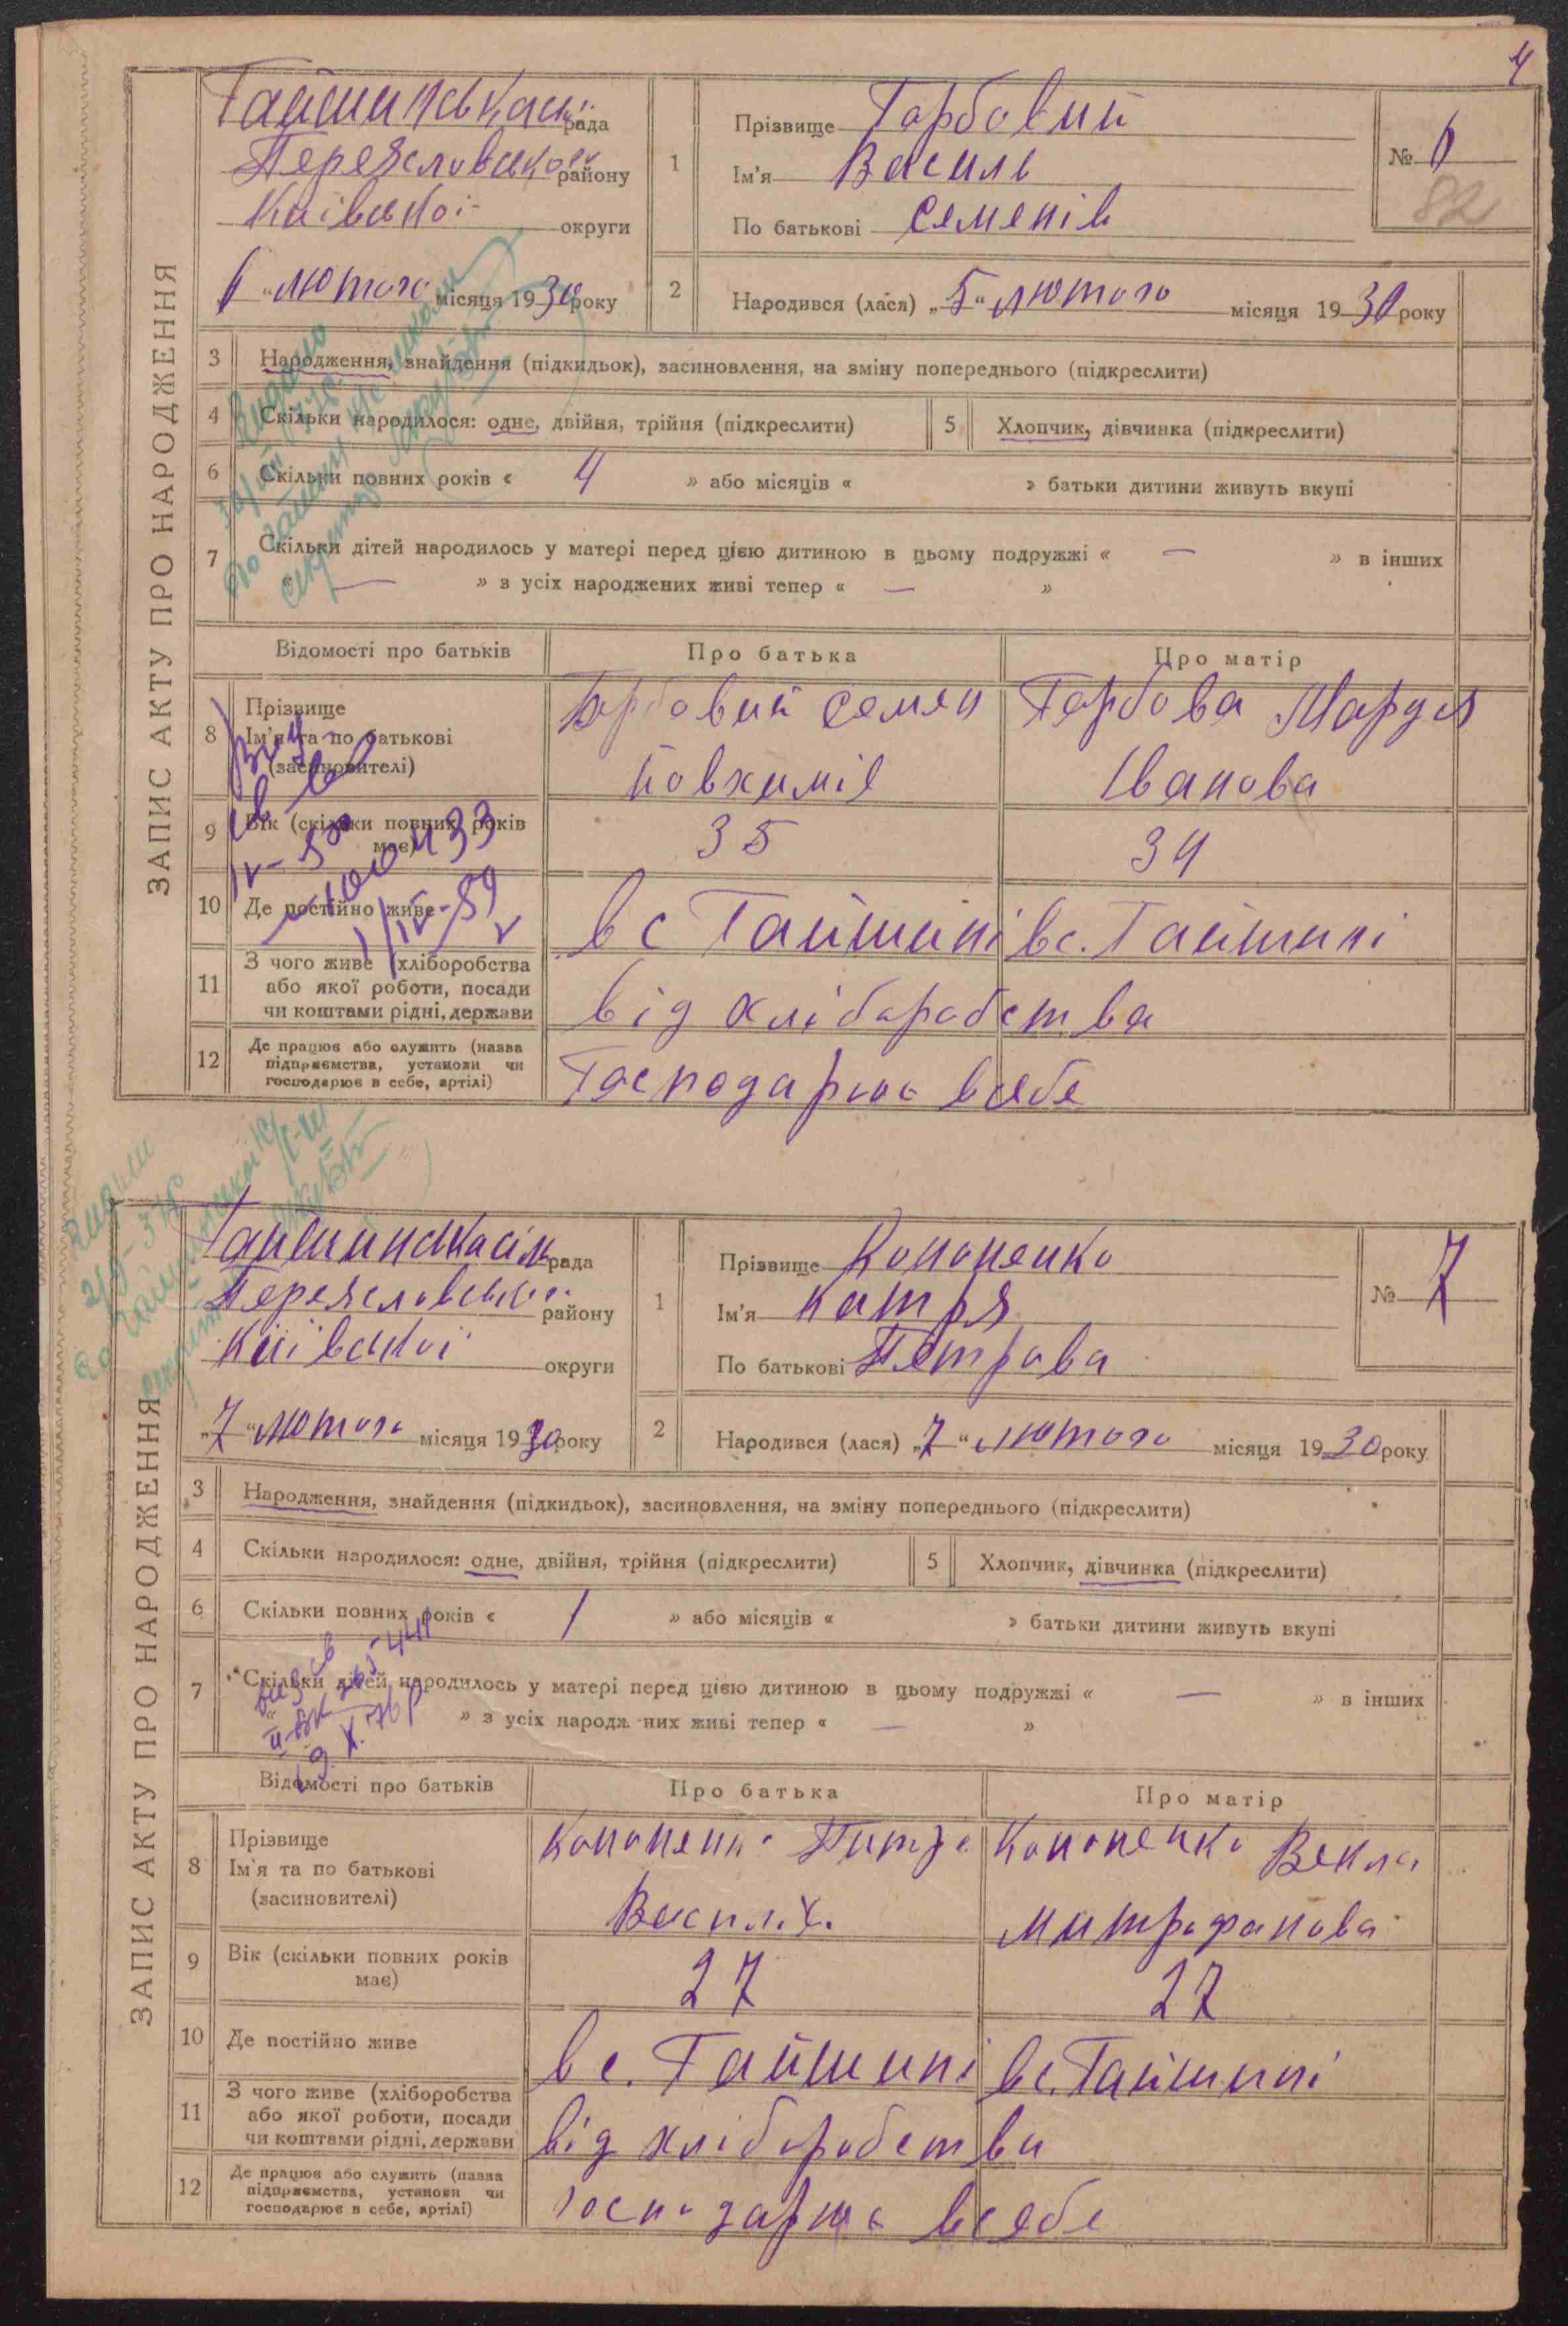 4
ЗАПИС АКТУ ПРО НАРОДЖЕННЯ
Гайшинська рада
Переяславського району
Київської округи
6 "лютого місяця 1930 року
1
Прізвище Горбовий
Ім'я Василь
По батькові Семенів
№ 6
82
2
Народився (лася) „5“ лютого місяця 1930 року
3 Народження, знайдення (підкидьок), засиновлення, на зміну попереднього (підкреслити)
4 Скільки народилося: одне, двійня, трійня (підкреслити)
5 Хлопчик, дівчинка (підкреслити)
6 Скільки повних років « 4 » або місяців « » батьки дитини живуть вкупі
7 Скільки дітей народилось у матері перед цією дитиною в цьому подружжі « — » в інших
« — » з усіх народжених живі тепер « — »
Відомості про батьків
Про батька
Про матір
8 Прізвище
Ім'я та по батькові
(засиновителі)
Горбовий Семен
Горбова Марія
Іванова
9 Вік (скільки повних років
має)
35
34
10 Де постійно живе
в с Гайшині
в с. Гайшині
11 З чого живе (хліборобства
або якої роботи, посади
чи коштами рідні, держави
від хліборобства
12 Де працює або служить (назва
підприємства, установи чи
господарює в себе, артілі)
Господарює в себе
ЗАПИС АКТУ ПРО НАРОДЖЕННЯ
Гайшинська рада
Переяславської району
Київської округи
„7“ лютого місяця 1930 року
1
Прізвище Кононенко
Ім'я Катря
По батькові Петрова
№ 7
2
Народився (лася) „7“ лютого місяця 1930 року
3 Народження, знайдення (підкидьок), засиновлення, на зміну попереднього (підкреслити)
4 Скільки народилося: одне, двійня, трійня (підкреслити)
5 Хлопчик, дівчинка (підкреслити)
6 Скільки повних років « 1 » або місяців « » батьки дитини живуть вкупі
7 Скільки дітей народилось у матері перед цією дитиною в цьому подружжі « — » в інших
« » з усіх народж них живі тепер « — »
Відомості про батьків
Про батька
Про матір
8 Прізвище
Ім'я та по батькові
(засиновителі)
Кононенко Петро
Кононенко Векла
Митрофанова
9 Вік (скільки повних років
має)
27
27
10 Де постійно живе
в с. Гайшині
в с. Гайшині
11 З чого живе (хліборобства
або якої роботи, посади
чи коштами рідні, держави
від хліборобства
12 Де працює або служить (назва
підприємства, установи чи
господарює в себе, артілі)
господарює в себе